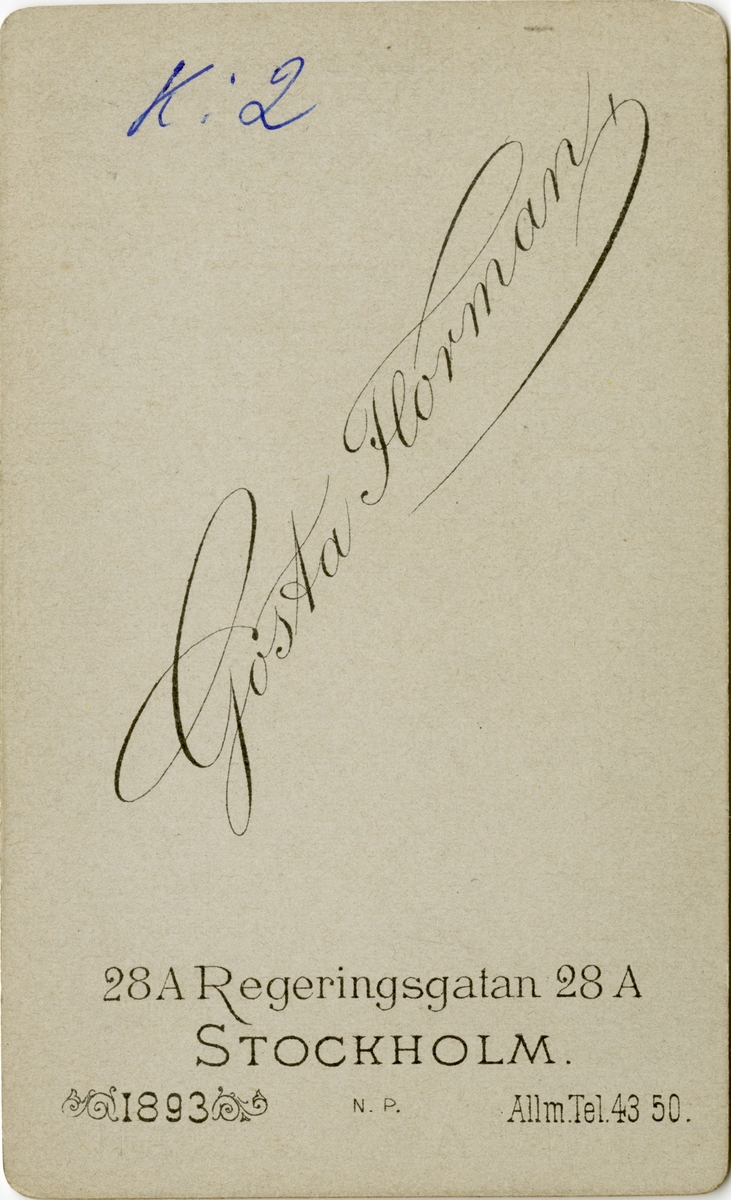 K:2
Gösta Florman
28A Regeringsgatan 28 A
STOCKHOLM.
1893 N. P. Allm.Tel.43 50.